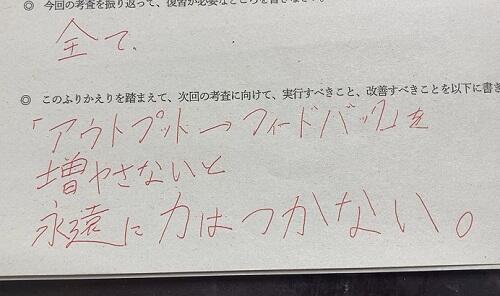 ◎ 今回の考査を振り返って、復習が必要なところを書きなさい。
全て、
◎ このふりかえりを踏まえて、次回の考査に向けて、実行すべきこと、改善すべきことを以下に書き
「アウトプット→フィードバック」を
増やさないと
永遠に力はつかない。